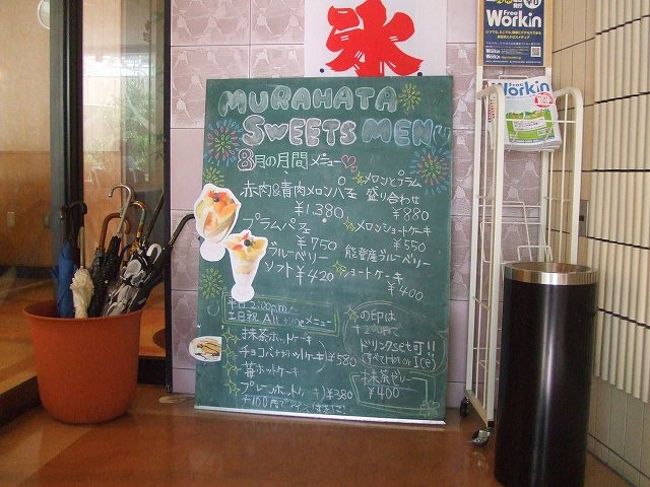 氷
Free
Workin
Free
Workin
MURAHATA
SWEETS MENU
8月の月間メニュー♡
赤肉&青肉メロンパフェ
¥1,380
プラムパフェ
¥750
ブルーベリー
ソフト ¥420
メロンとプラム
盛り合わせ
¥880
メロンショートケーキ
¥550
能登産ブルーベリー
ショートケーキ
¥400
平日 2:00p.m~
土日祝 All timeメニュー
抹茶ホットケーキ
¥580
苺ホットケーキ
プレーンホットケーキ ¥380
の印は
+200円で
ドリンクset可!!
抹茶ゼリー
¥400